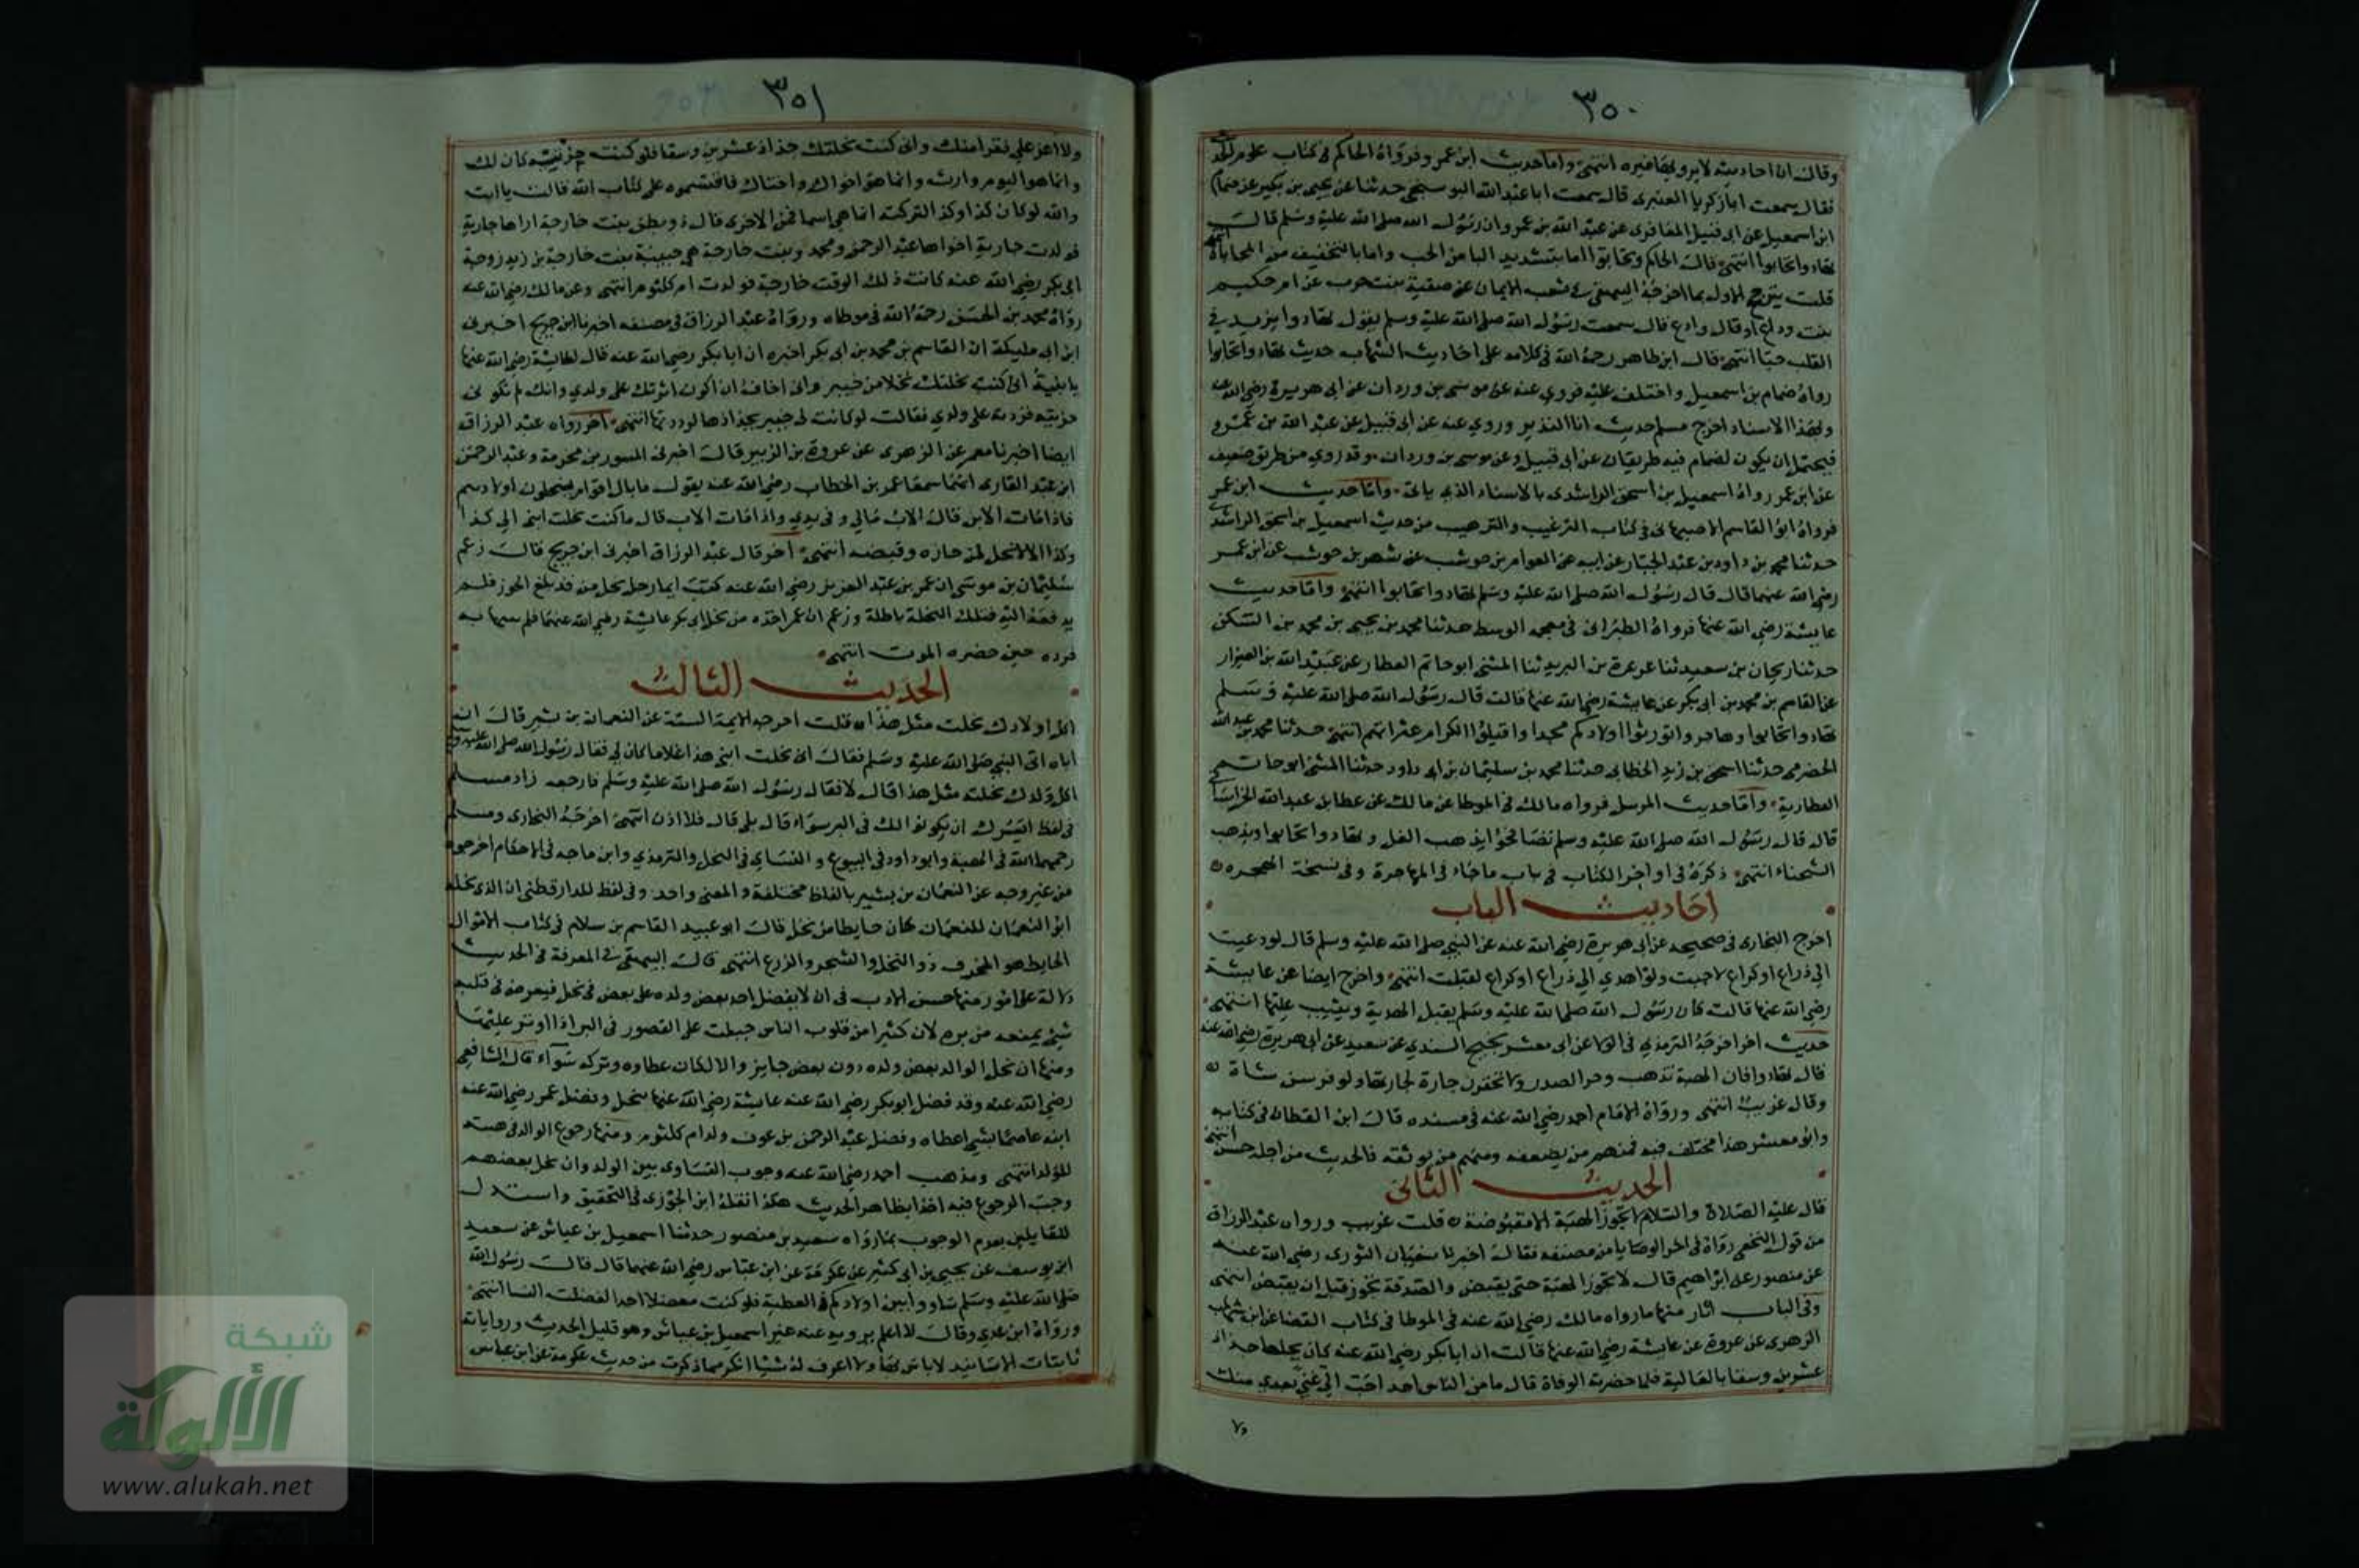 ٣٥٠
وقال ان احاديثه لا يرويها غيره انتهى واما حديث ابن عمرو فرواه الحاكم في كتاب علوم الحديث
فقال سمعت ابا زكريا العنبري قال سمعت ابا عبد الله البوسنجي حدثنا عن يحيى بن بكير عن ضمام
ابن اسمعيل عن ابي قبيل المعافري عن عبد الله بن عمرو ان رسول الله صلى الله عليه وسلم قال
تهادوا تحابوا انتهى قال الحاكم وتحابوا اما بتشديد البا من الحب واما بالتخفيف من المحاباة انتهى
قلت يترجح الاول بما اخرجه البيهقي في شعب الايمان عن صفية بنت حرب عن ام حكيم
بنت وداع او قال وادع قال سمعت رسول الله صلى الله عليه وسلم يقول تهادوا يزيد في
القلب حبا انتهى قال ابن طاهر رحمه الله في كلامه على احاديث الشهاب حديث تهادوا تحابوا
رواه ضمام بن اسمعيل واختلف عليه فروي عنه عن موسى بن وردان عن ابي هريرة رضي الله عنه
وبهذا الاسناد اخرج مسلم حديث انا النذير وروي عنه عن ابي قبيل عن عبد الله بن عمرو
فيحتمل ان يكون لضمام فيه طريقان عن ابي قبيل وعن موسى بن وردان وقد روي من طريق ضعيف
عن ابن عمر رواه اسمعيل بن اسحق الراشدي بالاسناد الذي ياتي واما حديث ابن عمر
فرواه ابو القاسم الاصبهاني في كتاب الترغيب والترهيب من حديث اسمعيل بن اسحق الراشدي
حدثنا محمد بن داود بن عبد الجبار عن ابيه عن العوام بن حوشب عن شهر بن حوشب عن ابن عمر
رضي الله عنهما قال قال رسول الله صلى الله عليه وسلم تهادوا تحابوا انتهى واما حديث
عايشة رضي الله عنها فرواه الطبراني في معجمه الوسط حدثنا محمد بن يحيى بن محمد بن السكن
حدثنا ريحان بن سعيد ثنا عرعرة بن البرند ثنا المثنى ابو حاتم العطار عن عبيد الله بن العيزار
عن القاسم بن محمد بن ابي بكر عن عايشة رضي الله عنها قالت قال رسول الله صلى الله عليه وسلم
تهادوا تحابوا وهاجروا تورثوا اولادكم مجدا واقيلوا الكرام عثراتهم انتهى حدثنا محمد بن عبد الله
الحضرمي حدثنا اسحق بن زيد الخطابي حدثنا محمد بن سليمان بن ابي داود حدثنا المثنى ابو حاتم
العطار به واما حديث المرسل فرواه مالك في الموطا عن مالك عن عطا بن عبد الله الخراساني
قال قال رسول الله صلى الله عليه وسلم تصافحوا يذهب الغل وتهادوا تحابوا ويذهب
الشحناء انتهى ذكره في اواخر الكتاب في باب ما جاء في المهاجرة وفي نسخة الهجرة
احاديث الباب
اخرج البخاري في صحيحه عن ابي هريرة رضي الله عنه عن النبي صلى الله عليه وسلم قال لو دعيت
الى ذراع او كراع لاجبت ولو اهدي الي ذراع او كراع لقبلت انتهى واخرج ايضا عن عايشة
رضي الله عنها قالت كان رسول الله صلى الله عليه وسلم يقبل الهدية ويثيب عليها انتهى
حديث اخر اخرجه الترمذي في الولاء عن ابي معشر نجيح السندي عن سعيد عن ابي هريرة رضي الله عنه
قال تهادوا فان الهدية تذهب وحر الصدر ولا تحقرن جارة لجارتها ولو فرسن شاة
وقال غريب انتهى ورواه الامام احمد رضي الله عنه في مسنده قال ابن القطان في كتابه
وابو معشر هذا مختلف فيه فمنهم من يضعفه ومنهم من يوثقه فالحديث من اجله حسن انتهى
الحديث الثاني
قال عليه الصلاة والسلام لا تجوز الهبة الا مقبوضة قلت غريب ورواه عبد الرزاق
من قول النخعي رواه في اخر الوصايا من مصنفه فقال اخبرنا سفيان الثوري رضي الله عنه
عن منصور عن ابراهيم قال لا تجوز الهبة حتى يقبض والصدقة تجوز قبل ان يقبض انتهى
وفي الباب اثار منها ما رواه مالك رضي الله عنه في الموطا في كتاب القضا عن ابن شهاب
الزهري عن عروة عن عايشة رضي الله عنها قالت ان ابا بكر رضي الله عنه كان نحلها جداد
عشرين وسقا بالعالية فلما حضرته الوفاة قال ما من الناس احد احب الي غنى بعدي منك
ولا
٣٥١
ولا اعز علي فقرا منك واني كنت نحلتك جذاذ عشرين وسقا فلو كنت جزيتيه كان لك
وانما هو اليوم وارث وانما هو اخواك واختاك فاقتسموه على كتاب الله قالت يا ابت
والله لو كان كذا وكذا لتركته انما هي اسما فمن الاخرى قال ذو بطن بنت خارجة اراها جارية
فولدت جارية اخواها عبد الرحمن ومحمد وبنت خارجة هي حبيبة بنت خارجة بن زيد زوجة
ابي بكر رضي الله عنه كانت ذلك الوقت خارجة فولدت ام كلثوم انتهى وعن مالك رضي الله عنه
رواه محمد بن الحسن رحمه الله في موطاه ورواه عبد الرزاق في مصنفه اخبرنا ابن جريج اخبرني
ابن ابي مليكة ان القاسم بن محمد بن ابي بكر اخبره ان ابا بكر رضي الله عنه قال لعايشة رضي الله عنها
يا بنية اني كنت نحلتك نخلا من خيبر واني اخاف ان اكون اثرتك على ولدي وانك لم تكوني
حزيتيه فرديه على ولدي فقالت لو كانت لي خيبر بجدادها لرددتها انتهى اخر رواه عبد الرزاق
ايضا اخبرنا معمر عن الزهري عن عروة بن الزبير قال اخبرني المسور بن مخرمة وعبد الرحمن
ابن عبد القاري انهما سمعا عمر بن الخطاب رضي الله عنه يقول ما بال اقوام ينحلون اولادهم
فاذا مات الابن قال الاب مالي وفي يدي واذا مات الاب قال ما كنت نحلت ابني الي كذا
وكذا الا لا نحل لمن حازه وقبضه انتهى اخر قال عبد الرزاق اخبرني ابن جريج قال زعم
سليمان بن موسى ان عمر بن عبد العزيز رضي الله عنه كتب ايما رجل نحل من قد بلغ الحوز فلم
يدفعه اليه فتلك النحلة باطلة وزعم ان عمر اخذه من نحل ابي بكر عايشة رضي الله عنهما فلم يبنها به
فرده حين حضره الموت انتهى
الحديث الثالث
اكل اولادك نحلت مثل هذا قلت اخرجه الايمة الستة عن النعمان بن بشير قال ان
اباه اتى النبي صلى الله عليه وسلم فقال اني نحلت ابني هذا غلاما كان لي فقال رسول الله صلى الله عليه وسلم
اكل ولدك نحلته مثل هذا قال لا فقال رسول الله صلى الله عليه وسلم فارجعه زاد مسلم
في لفظ ايسرك ان يكونوا لك في البر سواء قال بلى قال فلا اذن انتهى اخرجه البخاري ومسلم
رحمهما الله في الهبة وابو داود في البيوع والنساي في النحل والترمذي وابن ماجه في الاحكام اخرجوه
من غير وجه عن النعمان بن بشير بالفاظ مختلفة والمعنى واحد وفي لفظ للدارقطني ان الذي نحله
ابو النعمان للنعمان كان حايطا من نخل قال ابو عبيد القاسم بن سلام في كتاب الاموال
الحايط هو المخرف ذو النخل والشجر والزرع انتهى قال البيهقي في المعرفة في الحديث
دلالة على امور منها حسن الادب في ان لا يفضل احد بعض ولده على بعض في نحل فيعرض في قلب
شيء يمنعه من بره لان كثيرا من قلوب الناس جبلت على القصور في البر اذا اوثر عليها
ومنها ان نحل الوالد بعض ولده دون بعض جايز والا لكان عطاوه وتركه سواء قال الشافعي
رضي الله عنه وقد فضل ابو بكر رضي الله عنه عايشة رضي الله عنها بنحل وفضل عمر رضي الله عنه
ابنه عاصما بشيء اعطاه وفضل عبد الرحمن بن عوف ولد ام كلثوم ومنها رجوع الوالد في هبته
للولد انتهى ومذهب احمد رضي الله عنه وجوب التساوي بين الولد وان نحل بعضهم
وجب الرجوع فيه اخذا بظاهر الحديث هكذا نقله ابن الجوزي في التحقيق واستدل
للقايلين بعدم الوجوب بما رواه سعيد بن منصور حدثنا اسمعيل بن عياش عن سعيد
ابن يوسف عن يحيى بن ابي كثير عن عكرمة عن ابن عباس رضي الله عنهما قال قال رسول الله
صلى الله عليه وسلم ساووا بين اولادكم في العطية فلو كنت مفضلا احدا لفضلت النسا انتهى
ورواه ابن عدي وقال لا اعلم يرويه عنه غير اسمعيل بن عياش وهو قليل الحديث ورواياته
ثابتات الاسانيد لا باس بها ولا اعرف له شيا انكر مما ذكرت من حديث عكرمة عن ابن عباس
شبكة
الألوكة
www.alukah.net